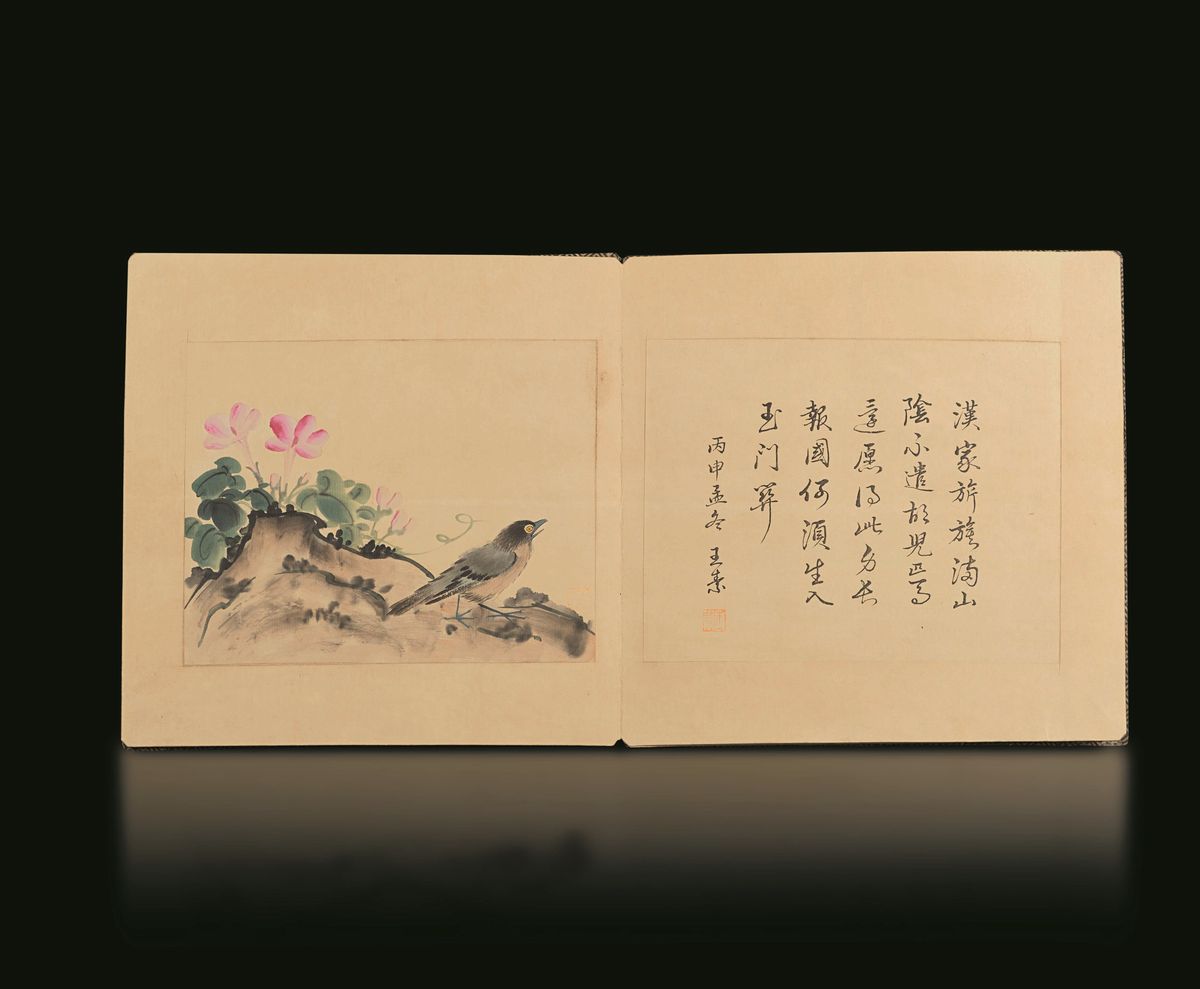 漢家旌旗滿山
陰不遣胡兒匹馬
還愿得此身長
報國何須生入
玉門關
丙申孟冬 王素